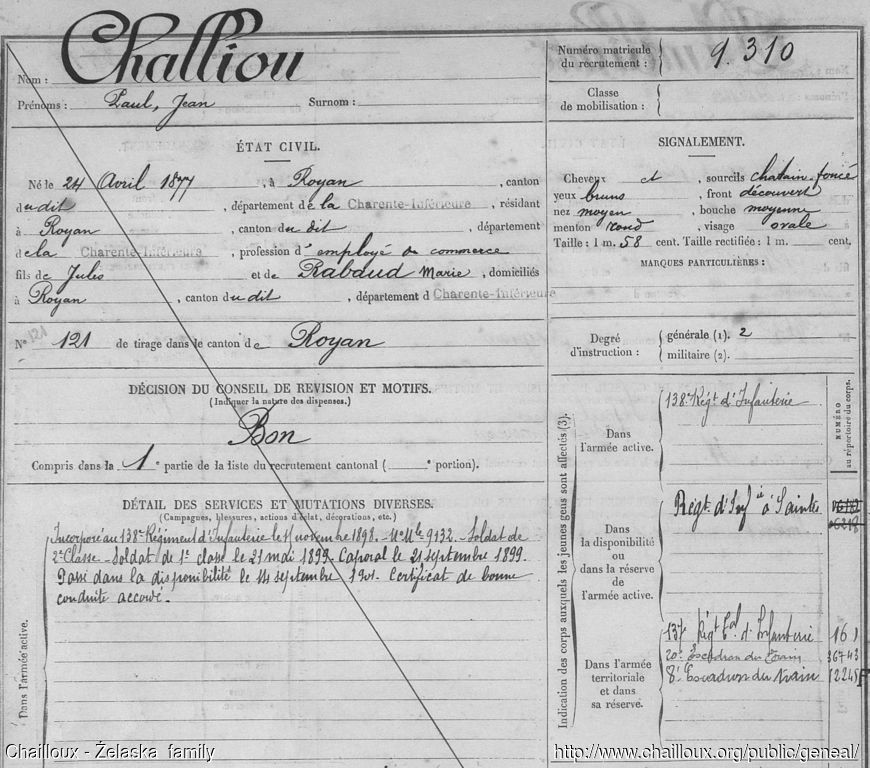 Nom : Challiou
Prénoms : Paul, Jean Surnom :
ÉTAT CIVIL.
Né le 24 Avril 1877, à Royan, canton
dudit, département de la Charente-Inférieure, résidant
à Royan, canton dudit, département
de la Charente-Inférieure, profession d'employé de commerce
fils de Jules et de Rabaud Marie, domiciliés
à Royan, canton dudit, département d Charente-Inférieure
N° 121 de tirage dans le canton de Royan
DÉCISION DU CONSEIL DE REVISION ET MOTIFS.
(Indiquer la nature des dispenses.)
Bon
Compris dans la 1e partie de la liste du recrutement cantonal ( e portion).
DÉTAIL DES SERVICES ET MUTATIONS DIVERSES.
(Campagnes, blessures, actions d'éclat, décorations, etc.)
Dans l'armée active.
Incorporé au 138e Régiment d'Infanterie le novembre 1898. N° Mle 9132. Soldat de
2e Classe. Soldat de 1e classe le 21 mai 1899. Caporal le 21 septembre 1899.
Passé dans la disponibilité le 14 septembre 1901. Certificat de bonne
conduite accordé.
Numéro matricule
du recrutement : 9.310
Classe
de mobilisation :
SIGNALEMENT.
Cheveux et, sourcils chatain foncé
yeux bruns, front découvert
nez moyen, bouche moyenne
menton rond, visage ovale
Taille : 1 m. 58 cent. Taille rectifiée : 1 m. cent.
MARQUES PARTICULIÈRES :
Degré
d'instruction :
générale (1). 2
militaire (2).
Indication des corps auxquels les jeunes gens sont affectés (3).
NUMÉRO
au répertoire du corps.
Dans
l'armée active.
138e Régt d'Infanterie
Dans
la disponibilité
ou
dans la réserve
de
l'armée active.
Régt d'Infie à Saintes
Dans l'armée
territoriale
et dans
sa réserve.
137 Régt Tal d'Infanterie 161
20e Escadron du Train 36743
8e Escadron du train
Chailloux - Żelaska family
http://www.chailloux.org/public/geneal/